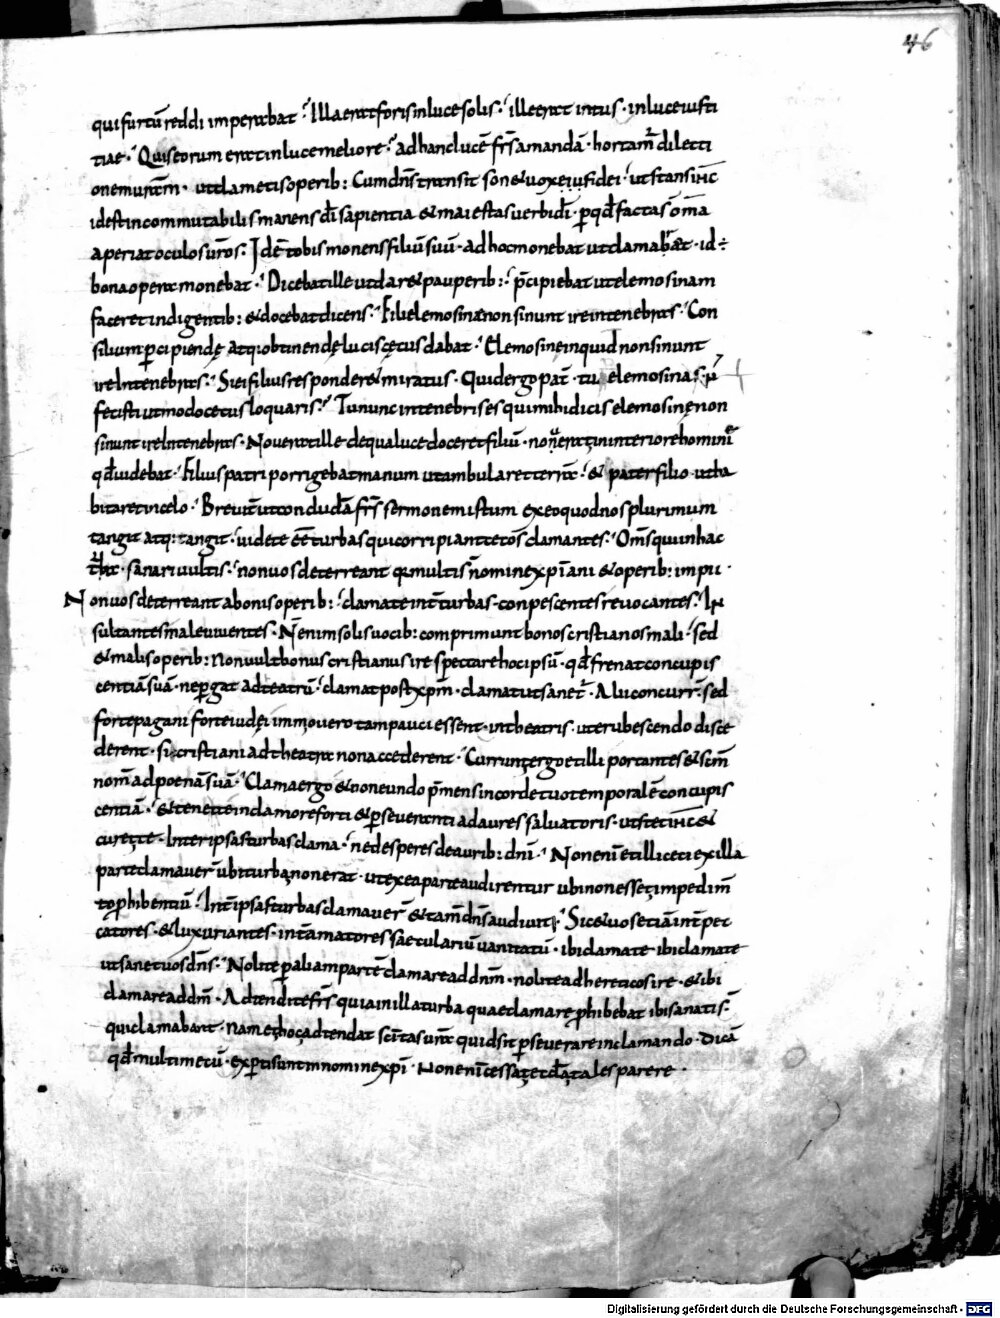 46
qui furtū reddi imperabat · Illa erat foris in luce solis · ille erat intus · in luce iusti
tiae · Quis eorum erat in luce meliore · ad hanc lucē fr̄s amandā · hortam̄ dilecti
onem ur̄am · ut clametis operib: Cum dn̄s transit sonet uox eius fidei · ut stans ih̄c
id est incommutabilis manens dī sapientia & maiestas uerbi dī · p quē facta s̄ om̄a
aperiat oculos ur̄os · Idē tobis monens filiū suū · ad hoc monebat ut clamaret · id ÷
bona opera monebat · Dicebat ille ut daret pauperib: p̄cipiebat ut elemosinam
faceret indigentib: & docebat dicens · Fili elemosinae non sinunt ire in tenebras · Con
silium p̄cipiendę atq: obtinendę lucis cętus dabat · Elemosine inquid non sinunt
ire In tenebras · Si ei filius responderet miratus · Quid ergo pat̄ · tu elemosinas n̄
fecisti ut modo cętus loquaris · Tu nunc in tenebris es qui mihi dicis elemosinę non
sinunt ire In tenebras · Nouerat ille de qua luce doceret filiū · nouerat in interiore homine
qd̄ uidebat · Filius patri porrigebat manum ut ambularet in terra · & pater filio ut ha
bitaret in celo · Breuit̄ ut concludā fr̄s sermonem istum ex eo quod nos plurimum
tangit atq: tangit · uidete eē turbas qui corripiant cētos clamantes · Om̄s qui in hac
turba · sanari uultis · non uos deterreant qui multi s̄ nomine xp̄iani & operib: impii ·
Non uos deterreant a bonis operib: clamate int̄ turbas · conpescentes reuocantes · In
sultantes male uiuentes · N̄ enim solis uocib: comprimunt bonos cristianos mali · sed
& malis operib: Non uult bonus cristianus ire spectare hoc ipsū · qd̄ frenat concupis
centiā suā · ne pergat ad teatrū · clamat post xp̄m · clamat ut sanet̄ · Alii concurr̄ · sed
forte pagani forte iudei immo uero tam pauci essent · in theatris · ut erubescendo disce
derent · si cristiani ad theatra non accederent · Currunt ergo et illi portantes & sc̄m
nom̄ ad poenā suā · Clama ergo & non eundo p̄mens in corde tuo temporalē concupis
centiā · & tene te in clamore forti & perseueranti ad aures saluatoris · ut stet ih̄c &
curet te · Inter ipsas turbas clama · ne desperes de aurib: dn̄i · Non enī et illi ceci ex illa
parte clamauer̄ ubi turba non erat · ut ex ea parte audirentur ubi non esset impedim̄
to phibentiū · Int̄ ipsas turbas clamauer̄ & tam̄ dn̄s audiuit · Sic & uos etiā int̄ pec
catores · & luxuriantes · int̄ amatores saecularū uanitatū · ibi clamate ibi clamate
ut sanet uos dn̄s · Nolite p aliam partē clamare ad dn̄m · nolite ad hereticos ire · & ibi
clamare ad dn̄m · Adtendite fr̄s quia in illa turba quae clamare phibebat ibi sanati s̄
qui clamabant · nam & hoc adtendat sc̄itas ur̄a quid sit perseuerare in clamando · Dicā
qd̄ multi mecū · experti sunt in nomine xp̄i · Non enī cessat ętclīa tales parere ·
Digitalisierung gefördert durch die Deutsche Forschungsgemeinschaft - DFG